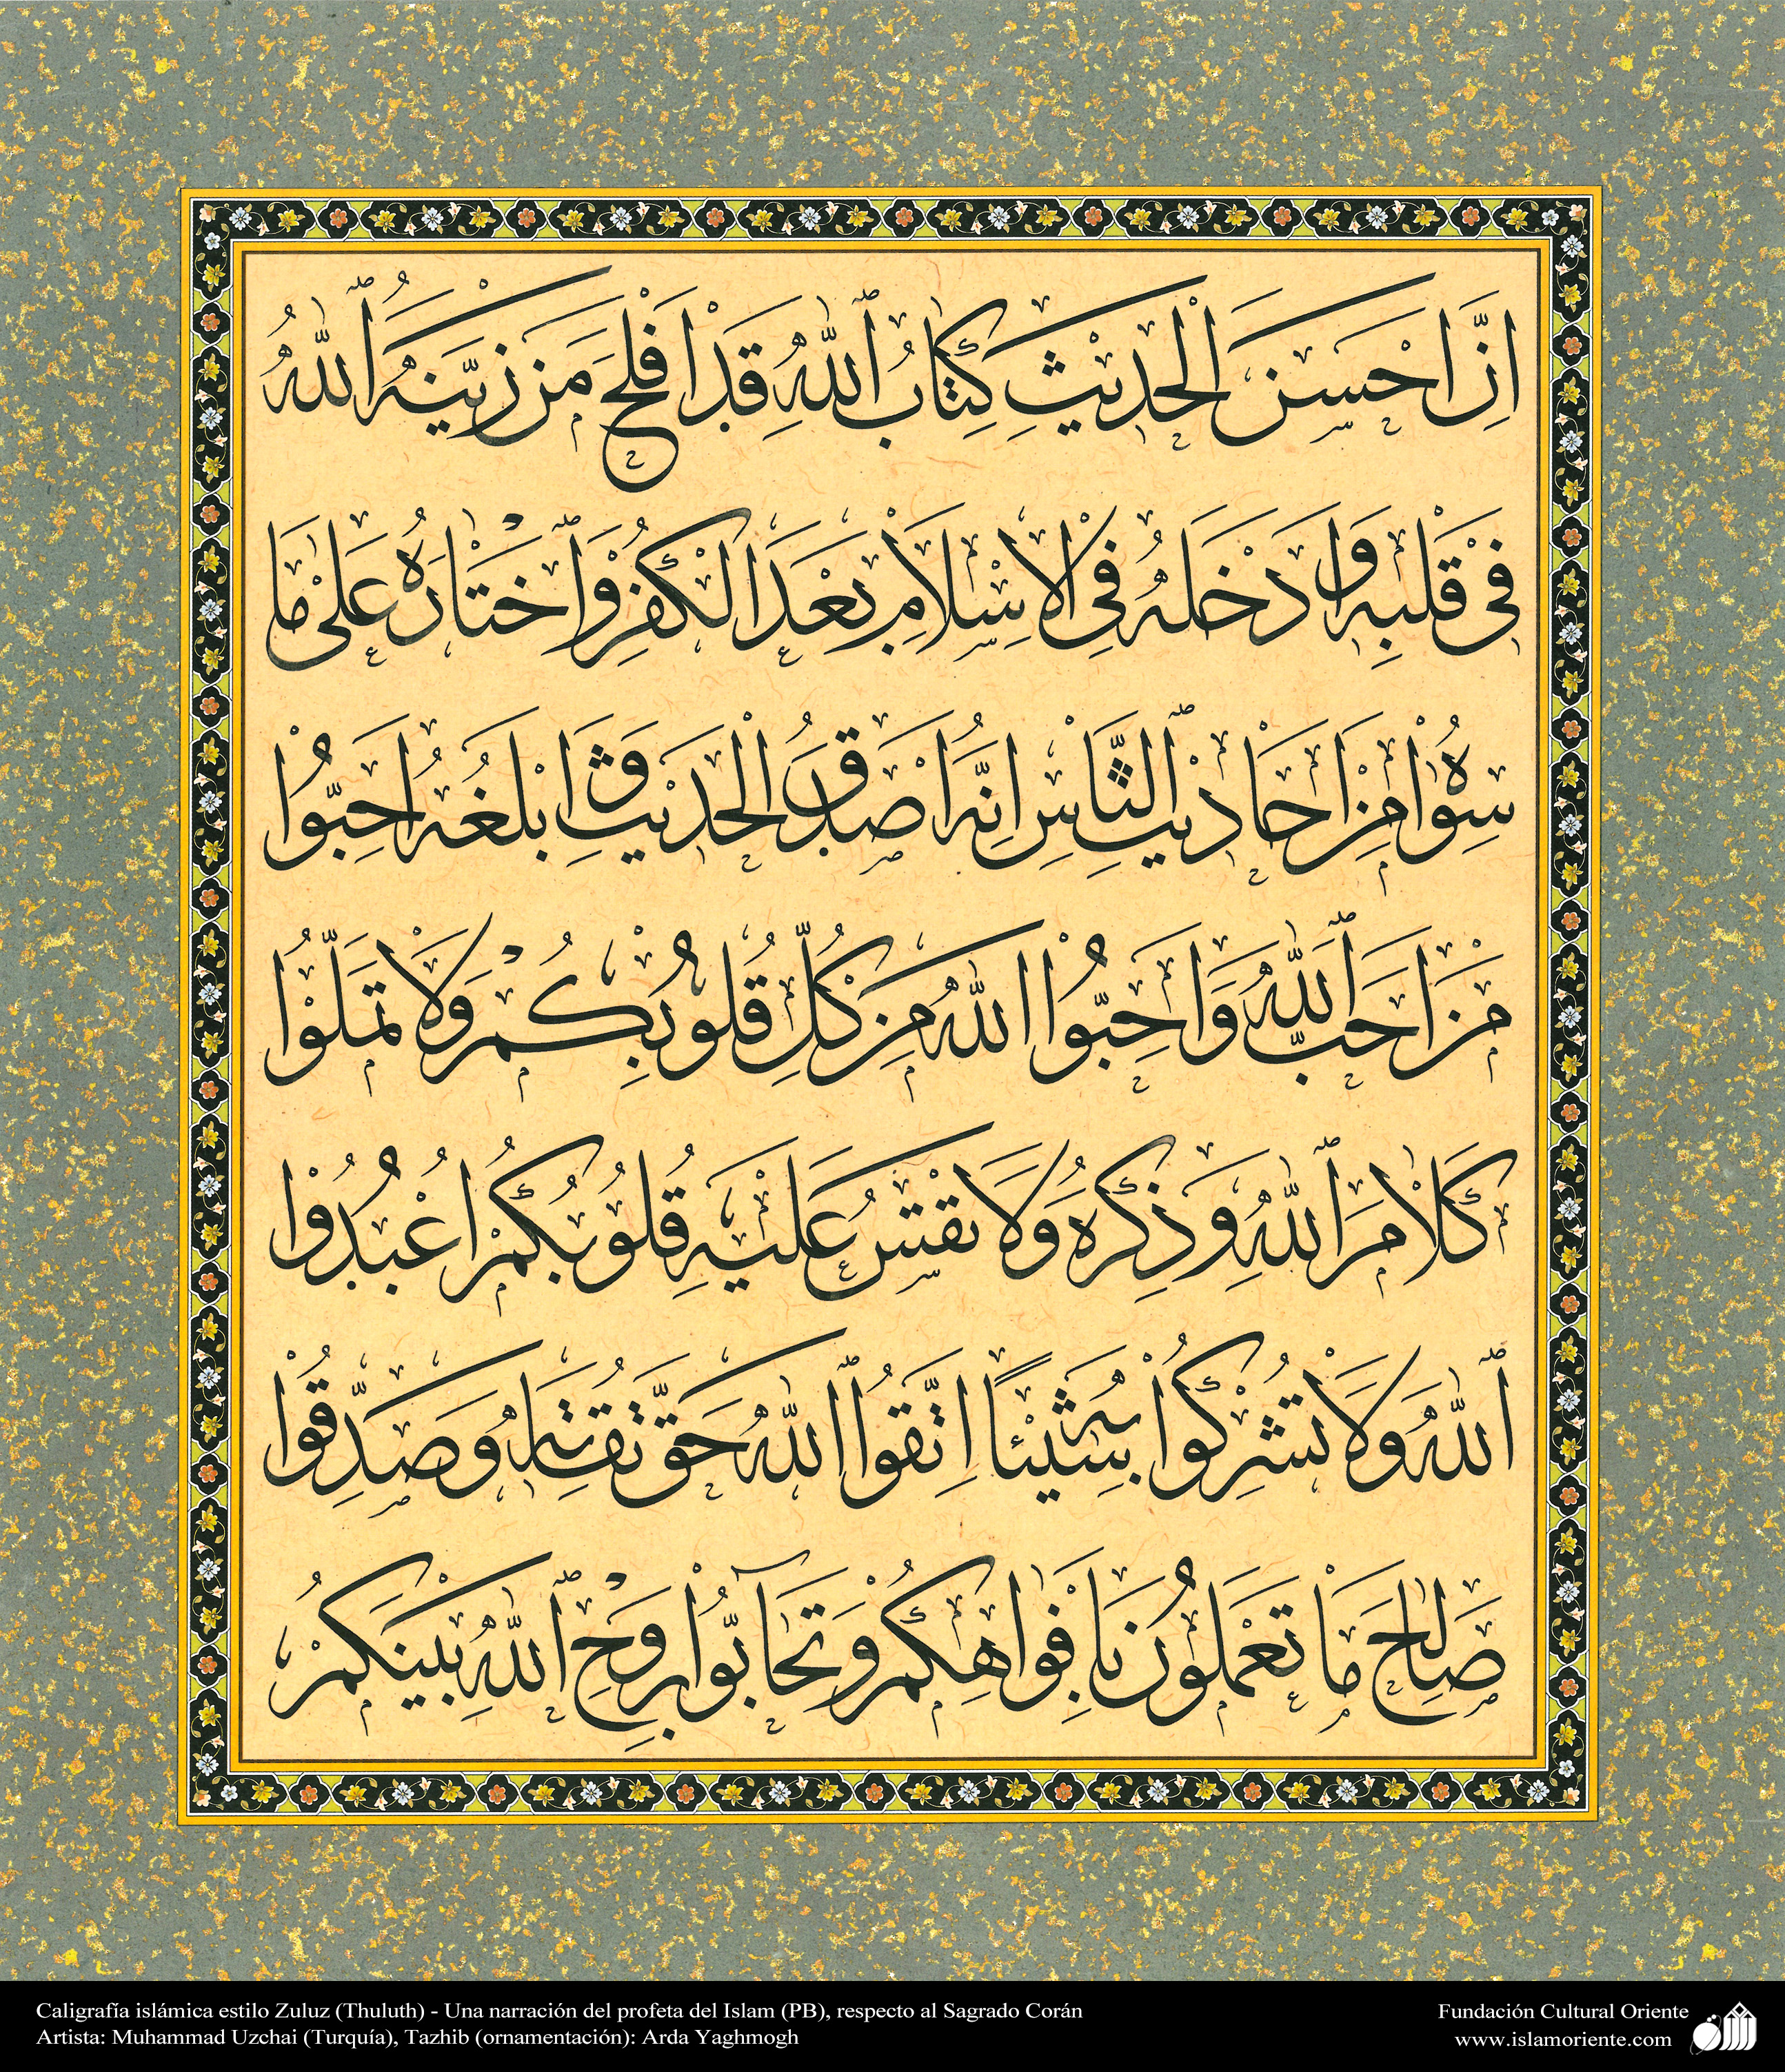 اِنَّ اَحْسَنَ الْحَدِيثِ كِتَابُ اللّٰهِ قَدْ اَفْلَحَ مَنْ زَيَّنَهُ اللّٰهُ
فِى قَلْبِهِ وَاَدْخَلَهُ فِى الْاِسْلَامِ بَعْدَ الْكُفْرِ وَاخْتَارَهُ عَلٰى مَا
سِوٰاهُ مِنْ اَحَادِيثِ النَّاسِ اِنَّهُ اَصْدَقُ الْحَدِيثِ وَاَبْلَغُهُ اَحِبُّوا
مَنْ اَحَبَّ اللّٰهَ وَاَحِبُّوا اللّٰهَ مِنْ كُلِّ قُلُوبِكُمْ وَلَا تَمَلُّوا
كَلَامَ اللّٰهِ وَذِكْرَهُ وَلَا تَقْسُ عَلَيْهِ قُلُوبُكُمْ اُعْبُدُوا
اللّٰهَ وَلَا تُشْرِكُوا بِهِ شَيْئًا اِتَّقُوا اللّٰهَ حَقَّ تُقَاتِهِ وَصَدِّقُوا
صَالِحَ مَا تَعْمَلُونَ بِاَفْوَاهِكُمْ وَتَحَابُّوا بِرَوْحِ اللّٰهِ بَيْنَكُمْ
Caligrafía islámica estilo Zuluz (Thuluth) - Una narración del profeta del Islam (PB), respecto al Sagrado Corán
Artista: Muhammad Uzchai (Turquía), Tazhib (ornamentación): Arda Yaghmogh
Fundación Cultural Oriente
www.islamoriente.com